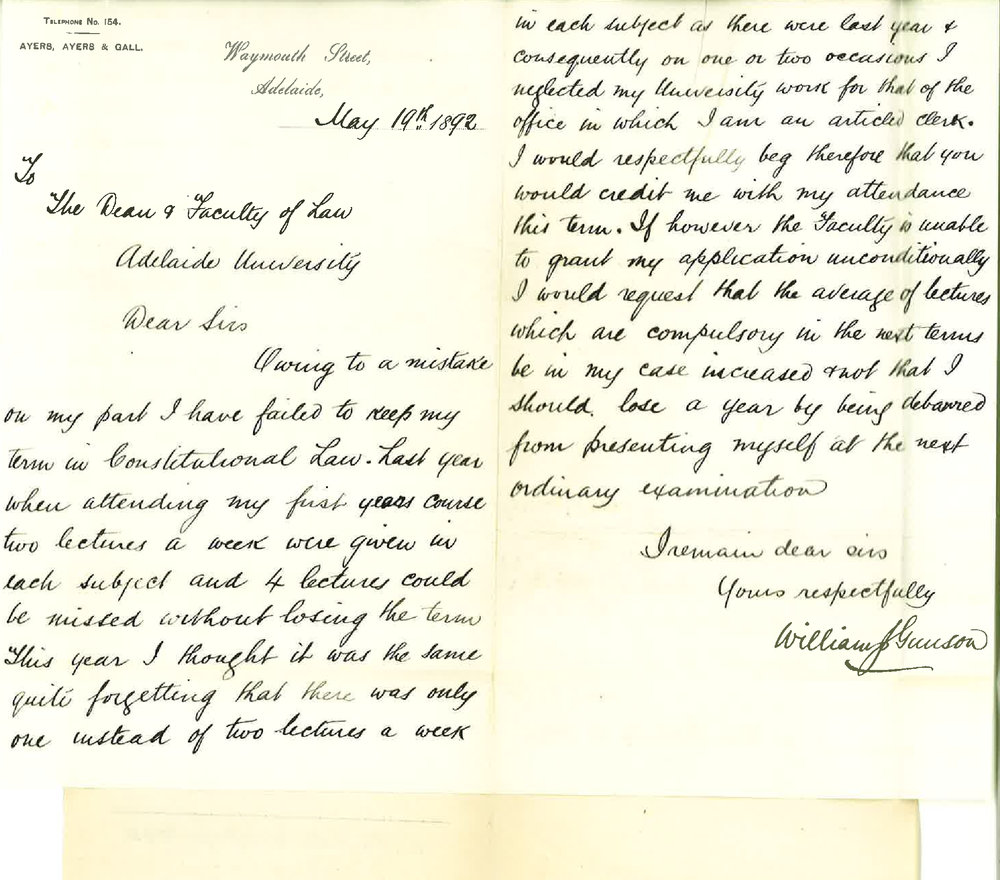 TELEPHONE No. 154.
AYERS, AYERS & GALL.
Waymouth Street,
Adelaide,
May 19th. 1892
To
The Dean & Faculty of Law
Adelaide University
Dear Sirs
Owing to a mistake
on my part I have failed to keep my
term in Constitutional Law. Last year
when attending my first years course
two lectures a week were given in
each subject and 4 lectures could
be missed without losing the term
This year I thought it was the same
quite forgetting that there was only
one instead of two lectures a week
in each subject as there were last year &
consequently on one or two occasions I
neglected my University work for that of the
office in which I am an articled clerk.
I would respectfully beg therefore that you
would credit me with my attendance
this term. If however the Faculty is unable
to grant my application unconditionally
I would request that the average of lectures
which are compulsory in the next terms
be in my case increased & not that I
should lose a year by being debarred
from presenting myself at the next
ordinary examination
I remain dear sirs
Yours respectfully
William J Gunson